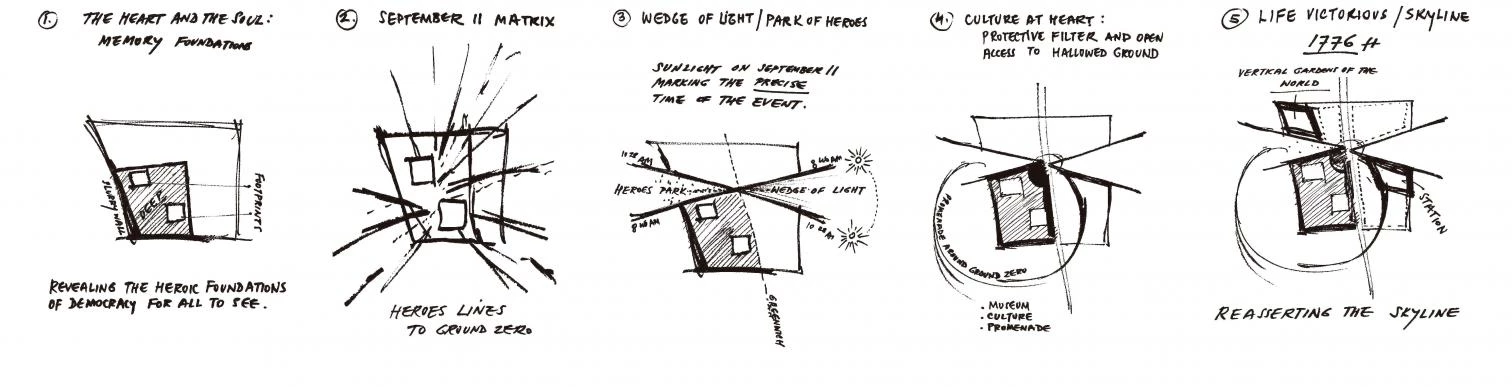 1. THE HEART AND THE SOUL:
MEMORY FOUNDATIONS
SLURRY WALL
DEEP
FOOTPRINTS
REVEALING THE HEROIC FOUNDATIONS
OF DEMOCRACY FOR ALL TO SEE.
2. SEPTEMBER 11 MATRIX
HEROES LINES
TO GROUND ZERO
3 WEDGE OF LIGHT/PARK OF HEROES
SUNLIGHT ON SEPTEMBER 11
MARKING THE PRECISE
TIME OF THE EVENT.
10 28 AM
8 46 AM
HEROES PARK
WEDGE OF LIGHT
8 46 AM
10 28 AM
GREENWICH
4. CULTURE AT HEART:
PROTECTIVE FILTER AND OPEN
ACCESS TO HALLOWED GROUND
PROMENADE AROUND GROUND ZERO
. MUSEUM
. CULTURE
. PROMENADE
5 LIFE VICTORIOUS/SKYLINE
1776 ft
VERTICAL GARDENS OF THE
WORLD
STATION
REASSERTING THE SKYLINE